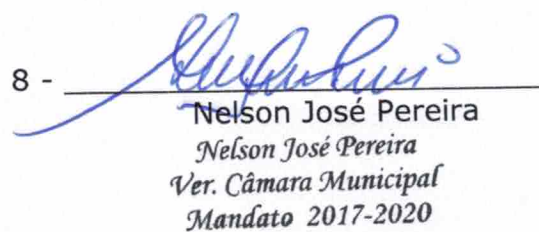 8 -
Nelson José Pereira
Nelson José Pereira
Ver. Câmara Municipal
Mandato 2017-2020